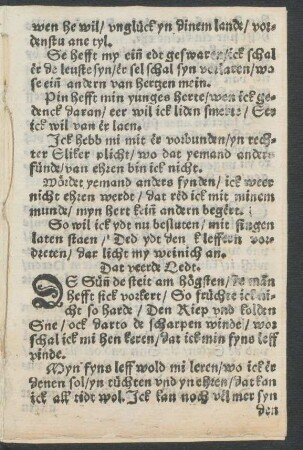 wen he wil / vnglück yn dinem lande / vor-
denstu ane tyl.
Se hefft my eiñ edt geswaren / ick schal
ẽr de leuste syn / ẽr sel schal syn vorlaren / wo
se eiñ andern van hertzen mein.
Pin hefft min yunges herte / wen ick ge-
denck daran / eer wil ick liden smerte / See
ick wil van ẽr laen.
Jck hebb mi mit ẽr vorbunden / yn rech-
ter Sliker plicht / wo dat yemand anders
fünde / van ehren bin ick nicht.
Würdet yemand anders fynden / ick weer
nicht ehren werdt / dat red ick mit minem
munde / myn hert keiñ andern begert.
So wil ick ydt nu besluten / mit singen
laten staen / Ded ydt den kleffern vor-
dretten / dar licht my weinich an.
Dat veerde Ledt.
DE Süñ de steit am högsten / de mãn
hefft sick vorkert / So früchte ick ni-
cht so harde / Den Riep vnd kolden
Sne / ock darto de scharpen winde / wor
schal ick mi hen keren / dat ick min fyns leff
vinde.
Myn fyns leff wold mi leren / wo ick ẽr
denen sol / yn tüchten vnd yn ehren / dat kan
ick all tidt wol. Jck kan noch vil mer syn
den